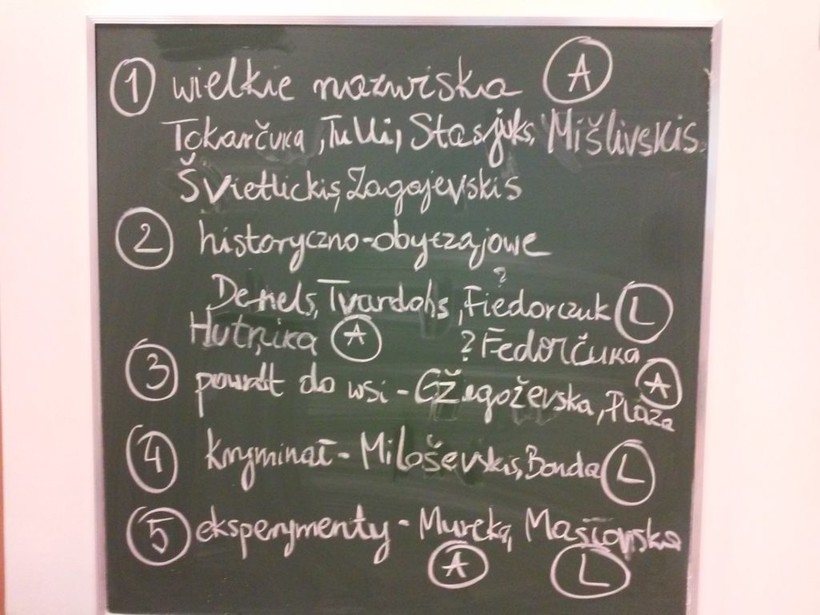 1 wielkie nazwiska A
Tokarčuka, Tulli, Stasjuks, Mišlivskis,
Švietlickis, Zagajevskis
2 historyczno-obyczajowe
Dēnels, Tvardohs, Fiedorczuk ? L
Hutņika A ? Fedorčuka
3 powrót do wsi - Gžegoževska, Plaza A
4 kryminał - Miloševskis, Bonda L
5 eksperymenty - Mureka, Masłowska
A L